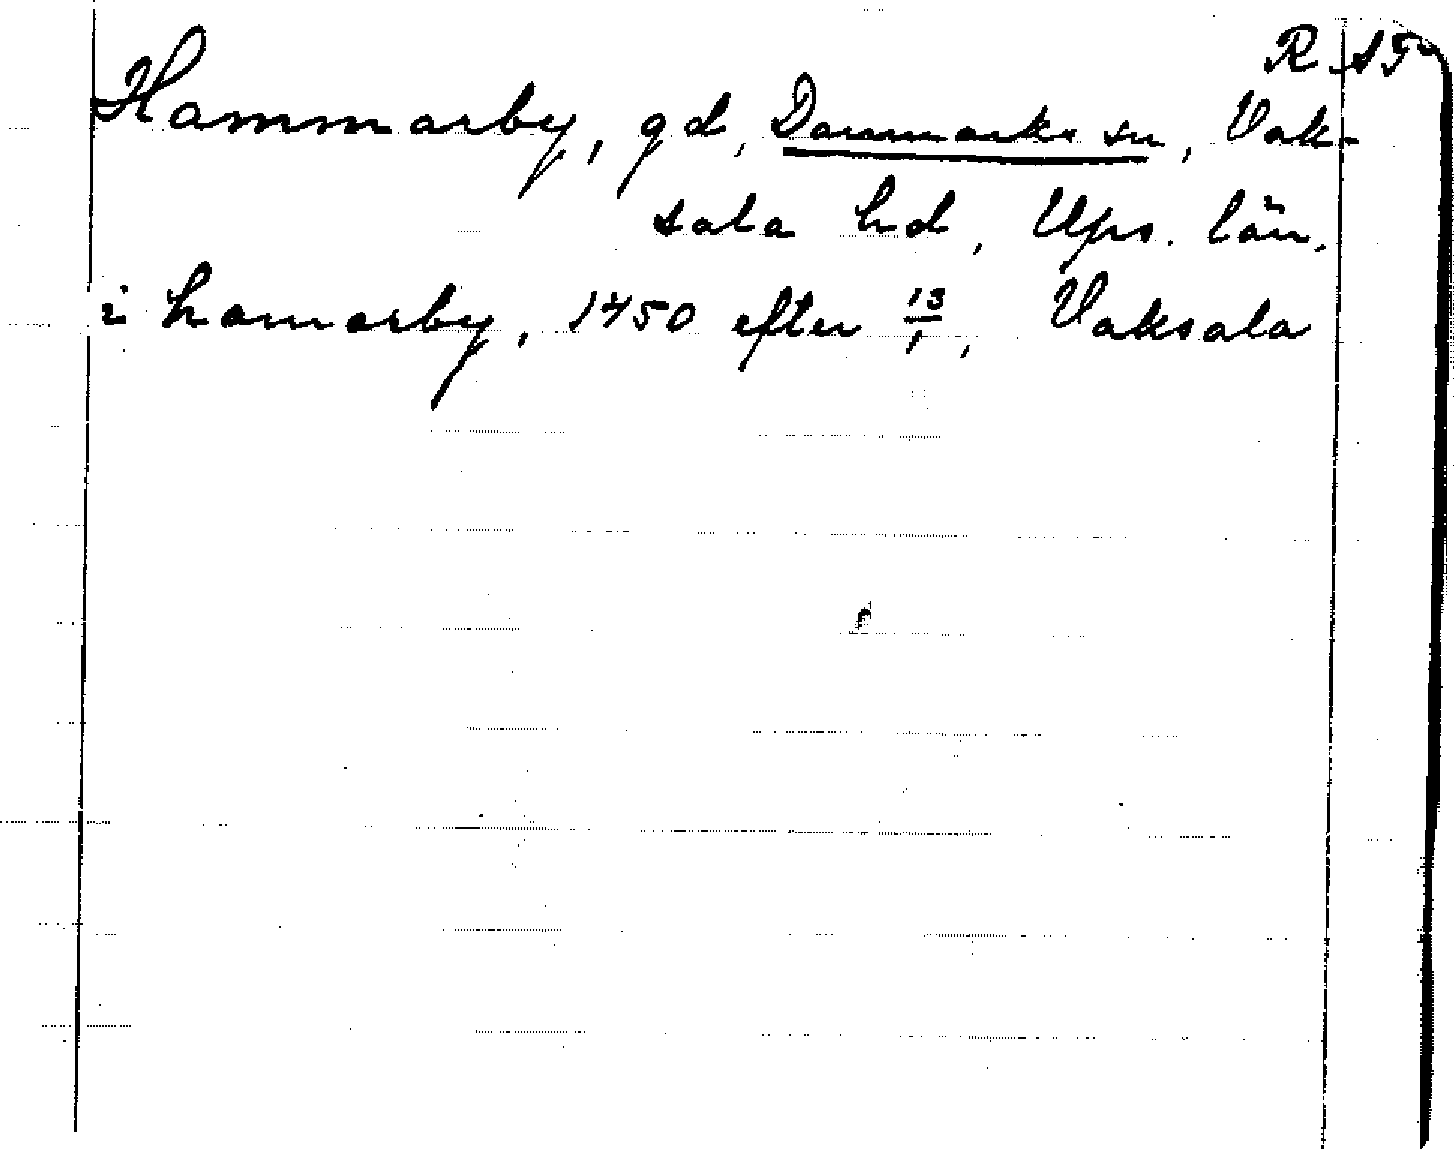 R
Hammarby, gd, Danmarks sn, Vak-
sala hd, Ups. län.
i hamarby, 1450 efter 13/1, Vaksala